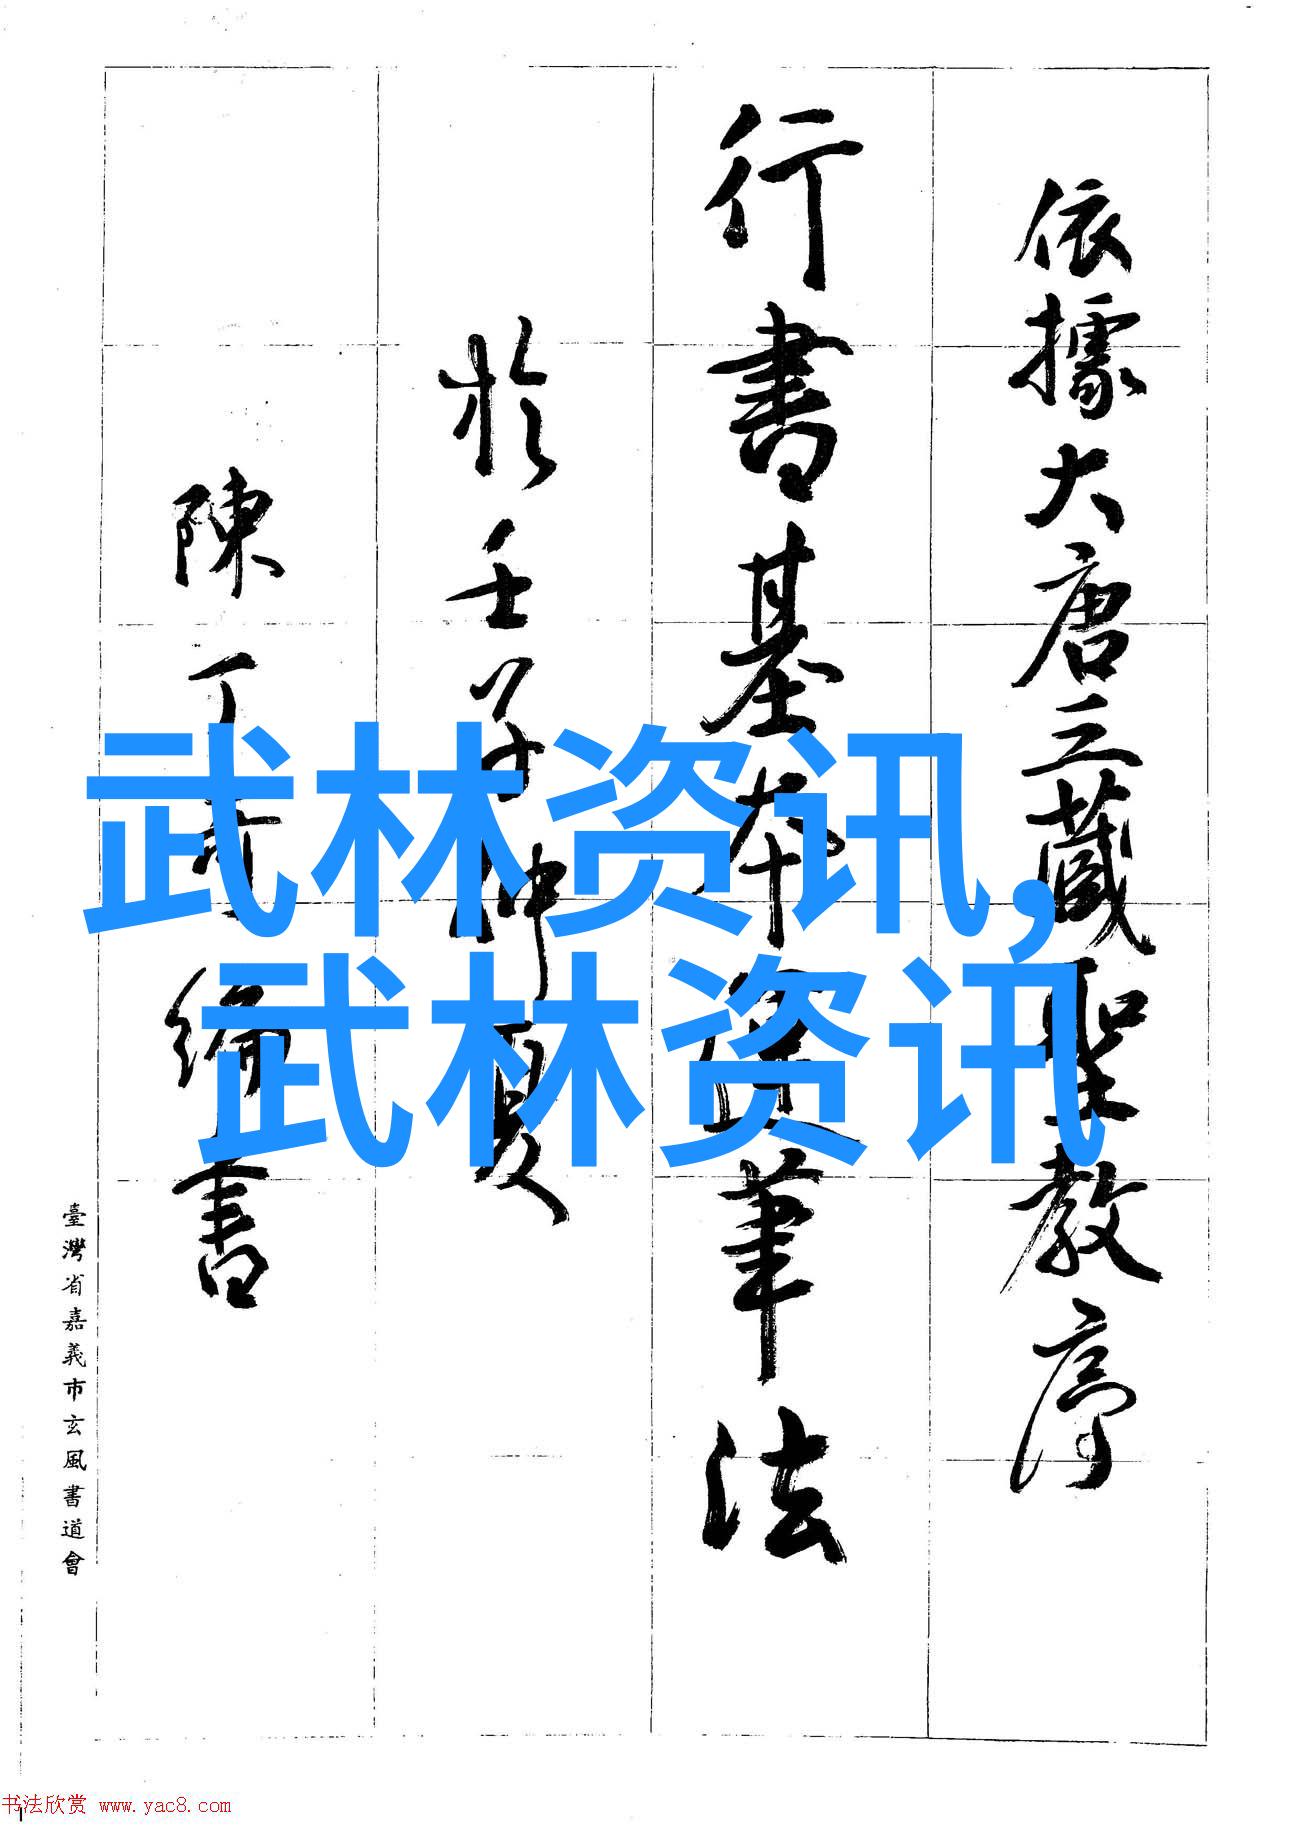 依據大唐三藏聖教序
行書基本運筆法
於壬子仲夏
陳丁奇編書
臺灣省嘉義市玄風書道會
武林资讯,
武林资讯
书法欣赏 www.yac8.com